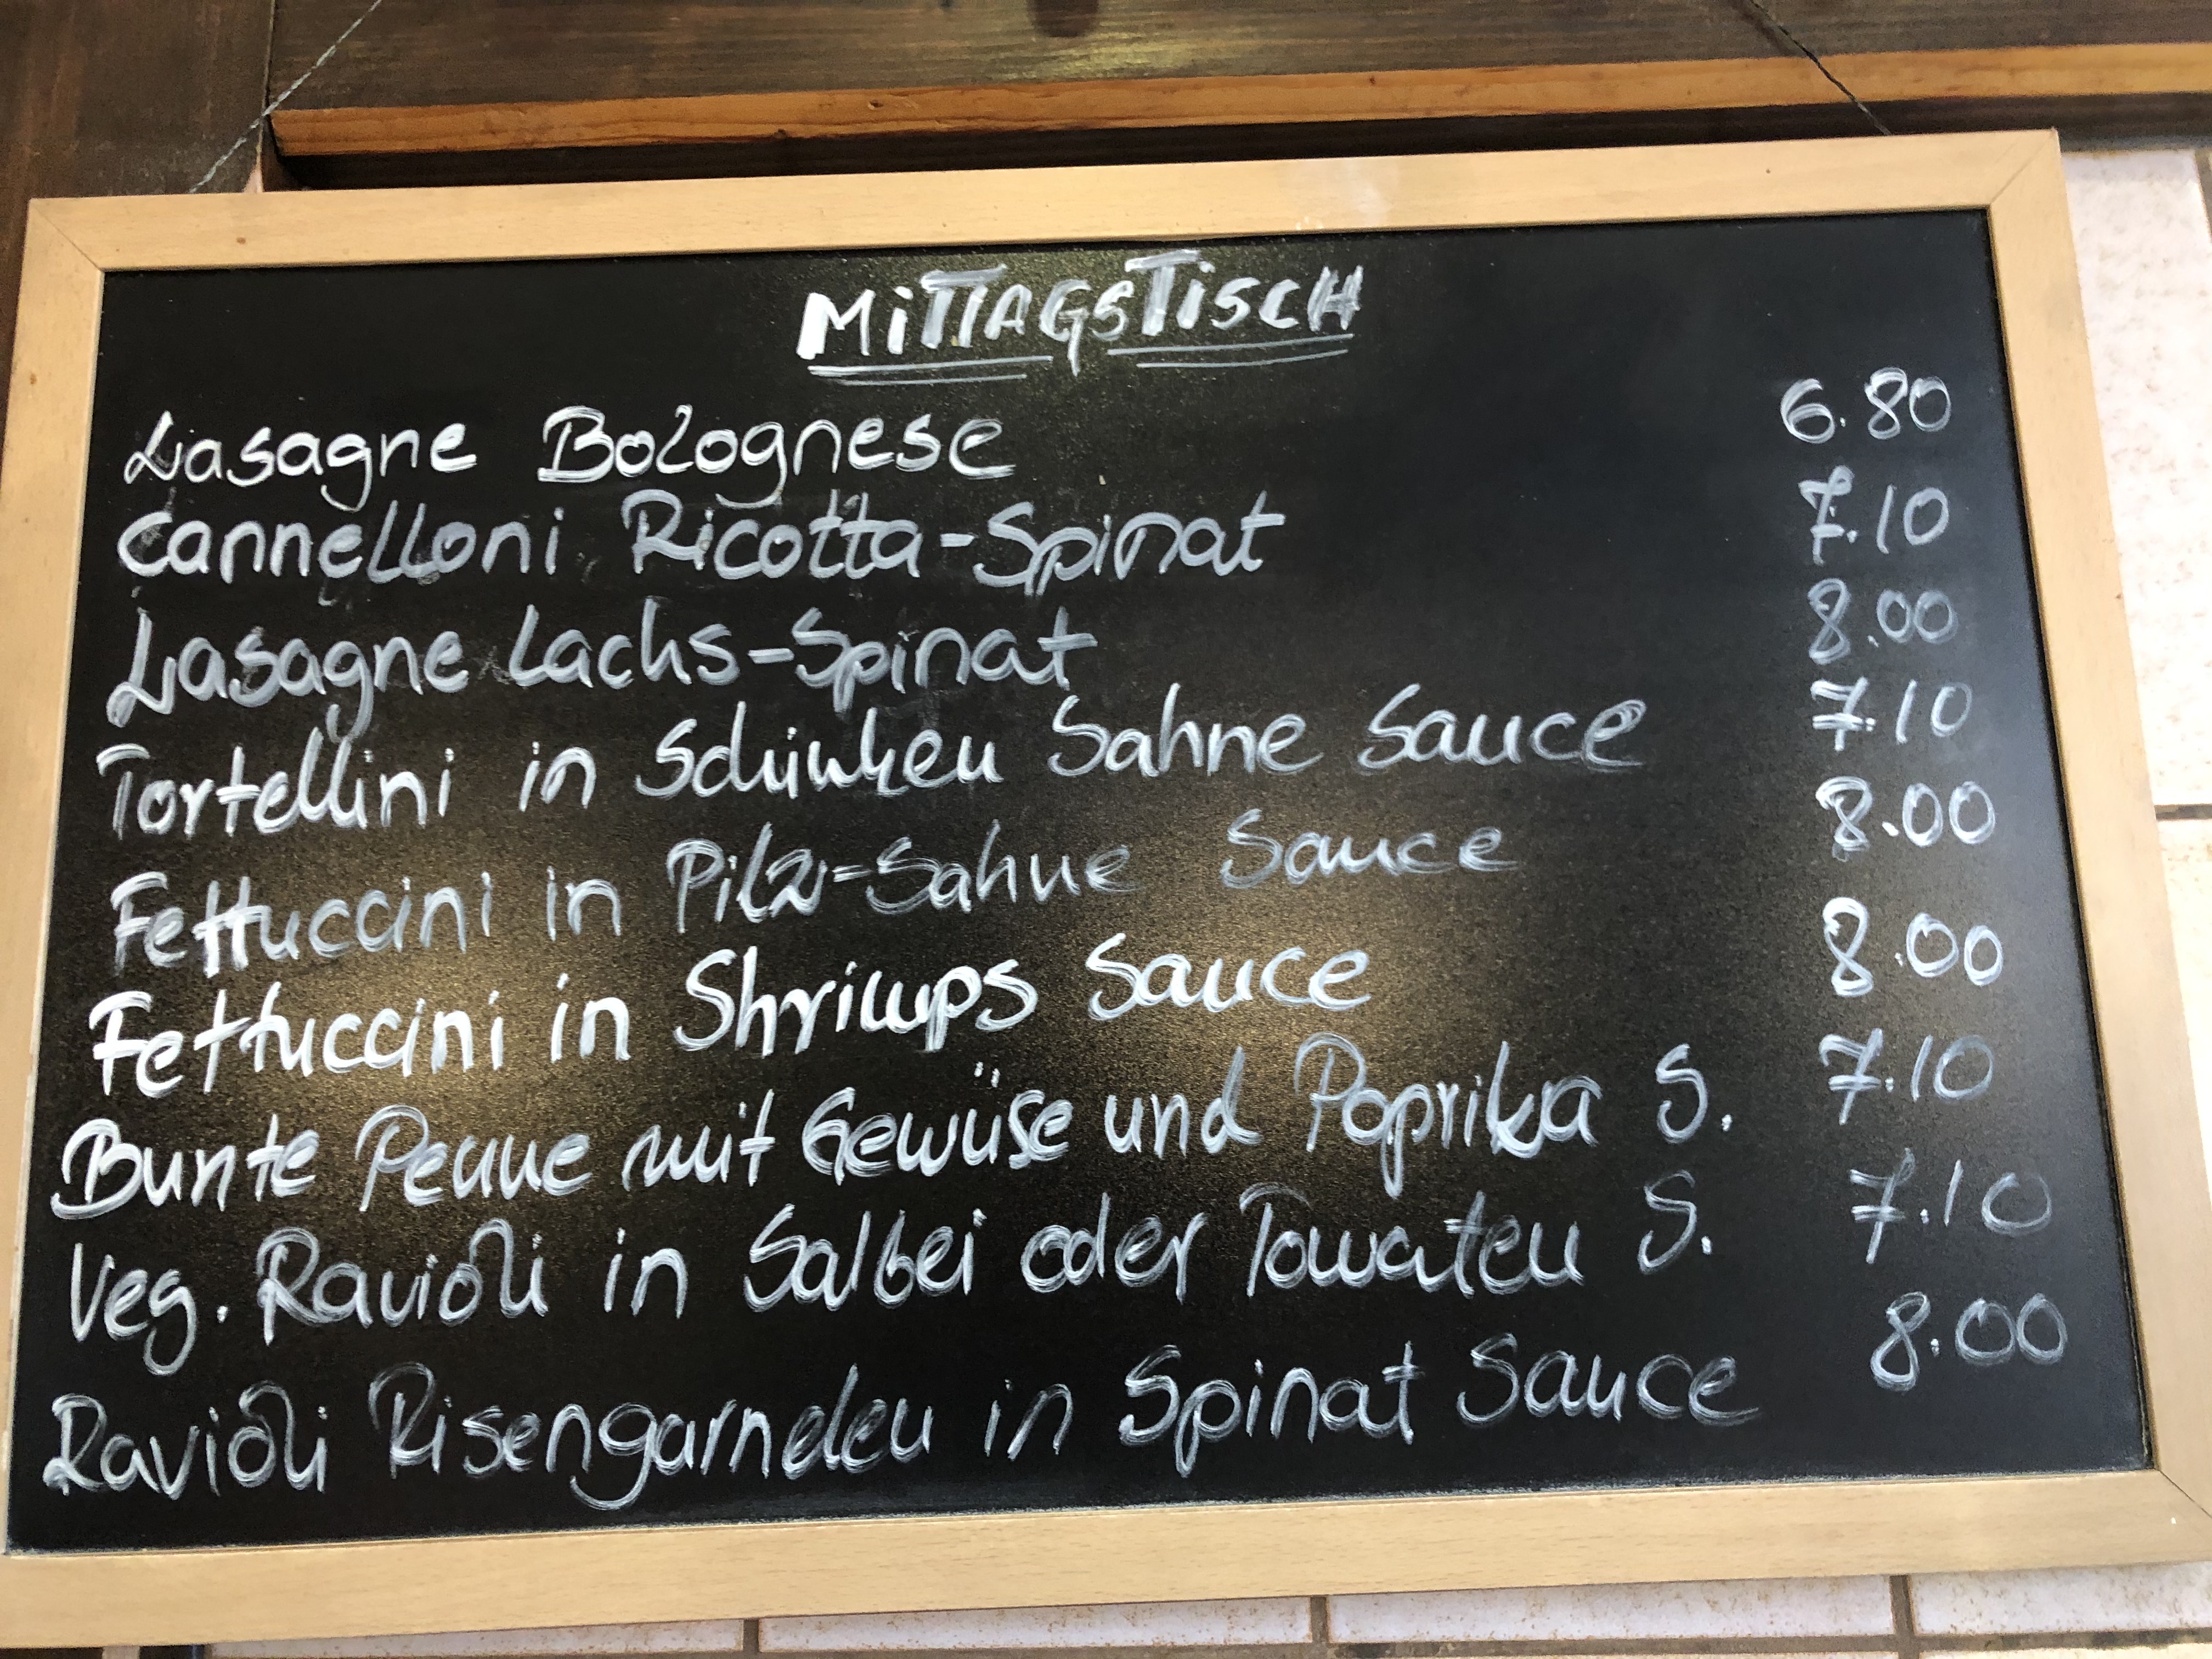 MiTTAGSTiSCH
Lasagne Bolognese 6.80
Cannelloni Ricotta-Spinat 7.10
Lasagne Lachs-Spinat 8.00
Tortellini in Schinken Sahne Sauce 7.10
Fettuccini in Pilz-Sahne Sauce 8.00
Fettuccini in Shrimps Sauce 8.00
Bunte Penne mit Gewüse und Paprika S. 7.10
Veg. Ravioli in Salbei oder Tomaten S. 7.10
Ravioli Risengarnelen in Spinat Sauce 8.00